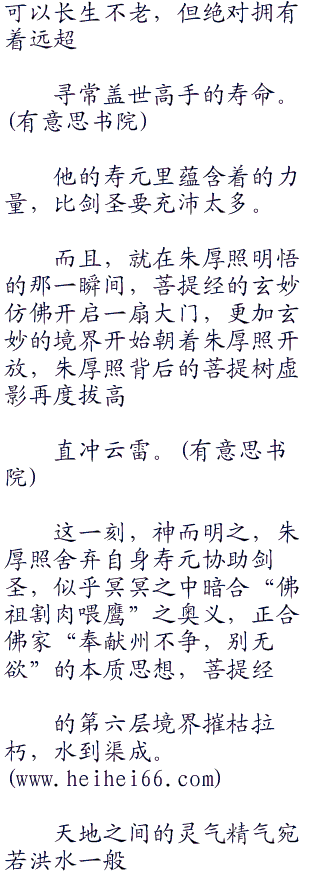 可以长生不老，但绝对拥有
着远超
寻常盖世高手的寿命。
(有意思书院)
他的寿元里蕴含着的力
量，比剑圣要充沛太多。
而且，就在朱厚照明悟
的那一瞬间，菩提经的玄妙
仿佛开启一扇大门，更加玄
妙的境界开始朝着朱厚照开
放，朱厚照背后的菩提树虚
影再度拔高
直冲云雷。(有意思书
院)
这一刻，神而明之，朱
厚照舍弃自身寿元协助剑
圣，似乎冥冥之中暗合“佛
祖割肉喂鹰”之奥义，正合
佛家“奉献州不争，别无
欲”的本质思想，菩提经
的第六层境界摧枯拉
朽，水到渠成。
(www.heihei66.com)
天地之间的灵气精气宛
若洪水一般